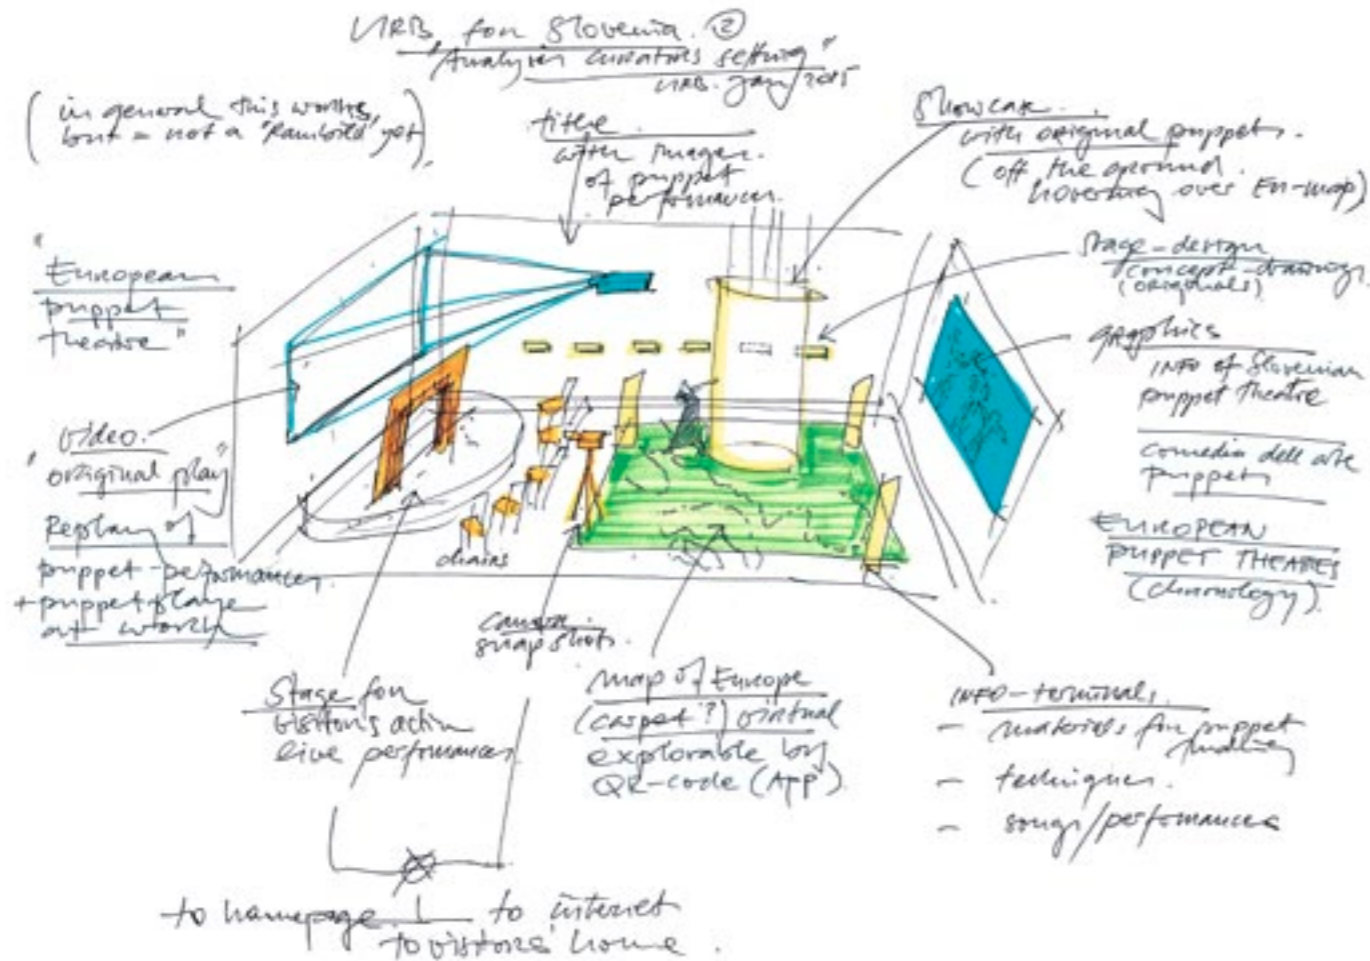 URB for Slovenia. ②
"Analysis curators setting"
URB. Jan/2015
(in general this works,
but = not a "Raumbild" yet)
title
with images
of puppet
performances
Showcase
with original puppets.
(off the ground.
hovering over Eu-map)
stage-design
concept-drawings
(originals)
graphics
INFO of Slovenian
puppet theatre
comedia dell arte
puppets
EUROPEAN
PUPPET THEATRES
(chronology).
"European
puppet
theatre"
video.
"original play"
Replay of
puppet-performances
+ puppet players
at work
chairs
camera
snapshots.
Stage for
visitors action
live performances
map of Europe
(carpet?) virtual
explorable by
QR-code (App).
INFO-terminals.
- materials for puppet
making
- techniques.
- songs/performances
to homepage to internet
to visitors' home.